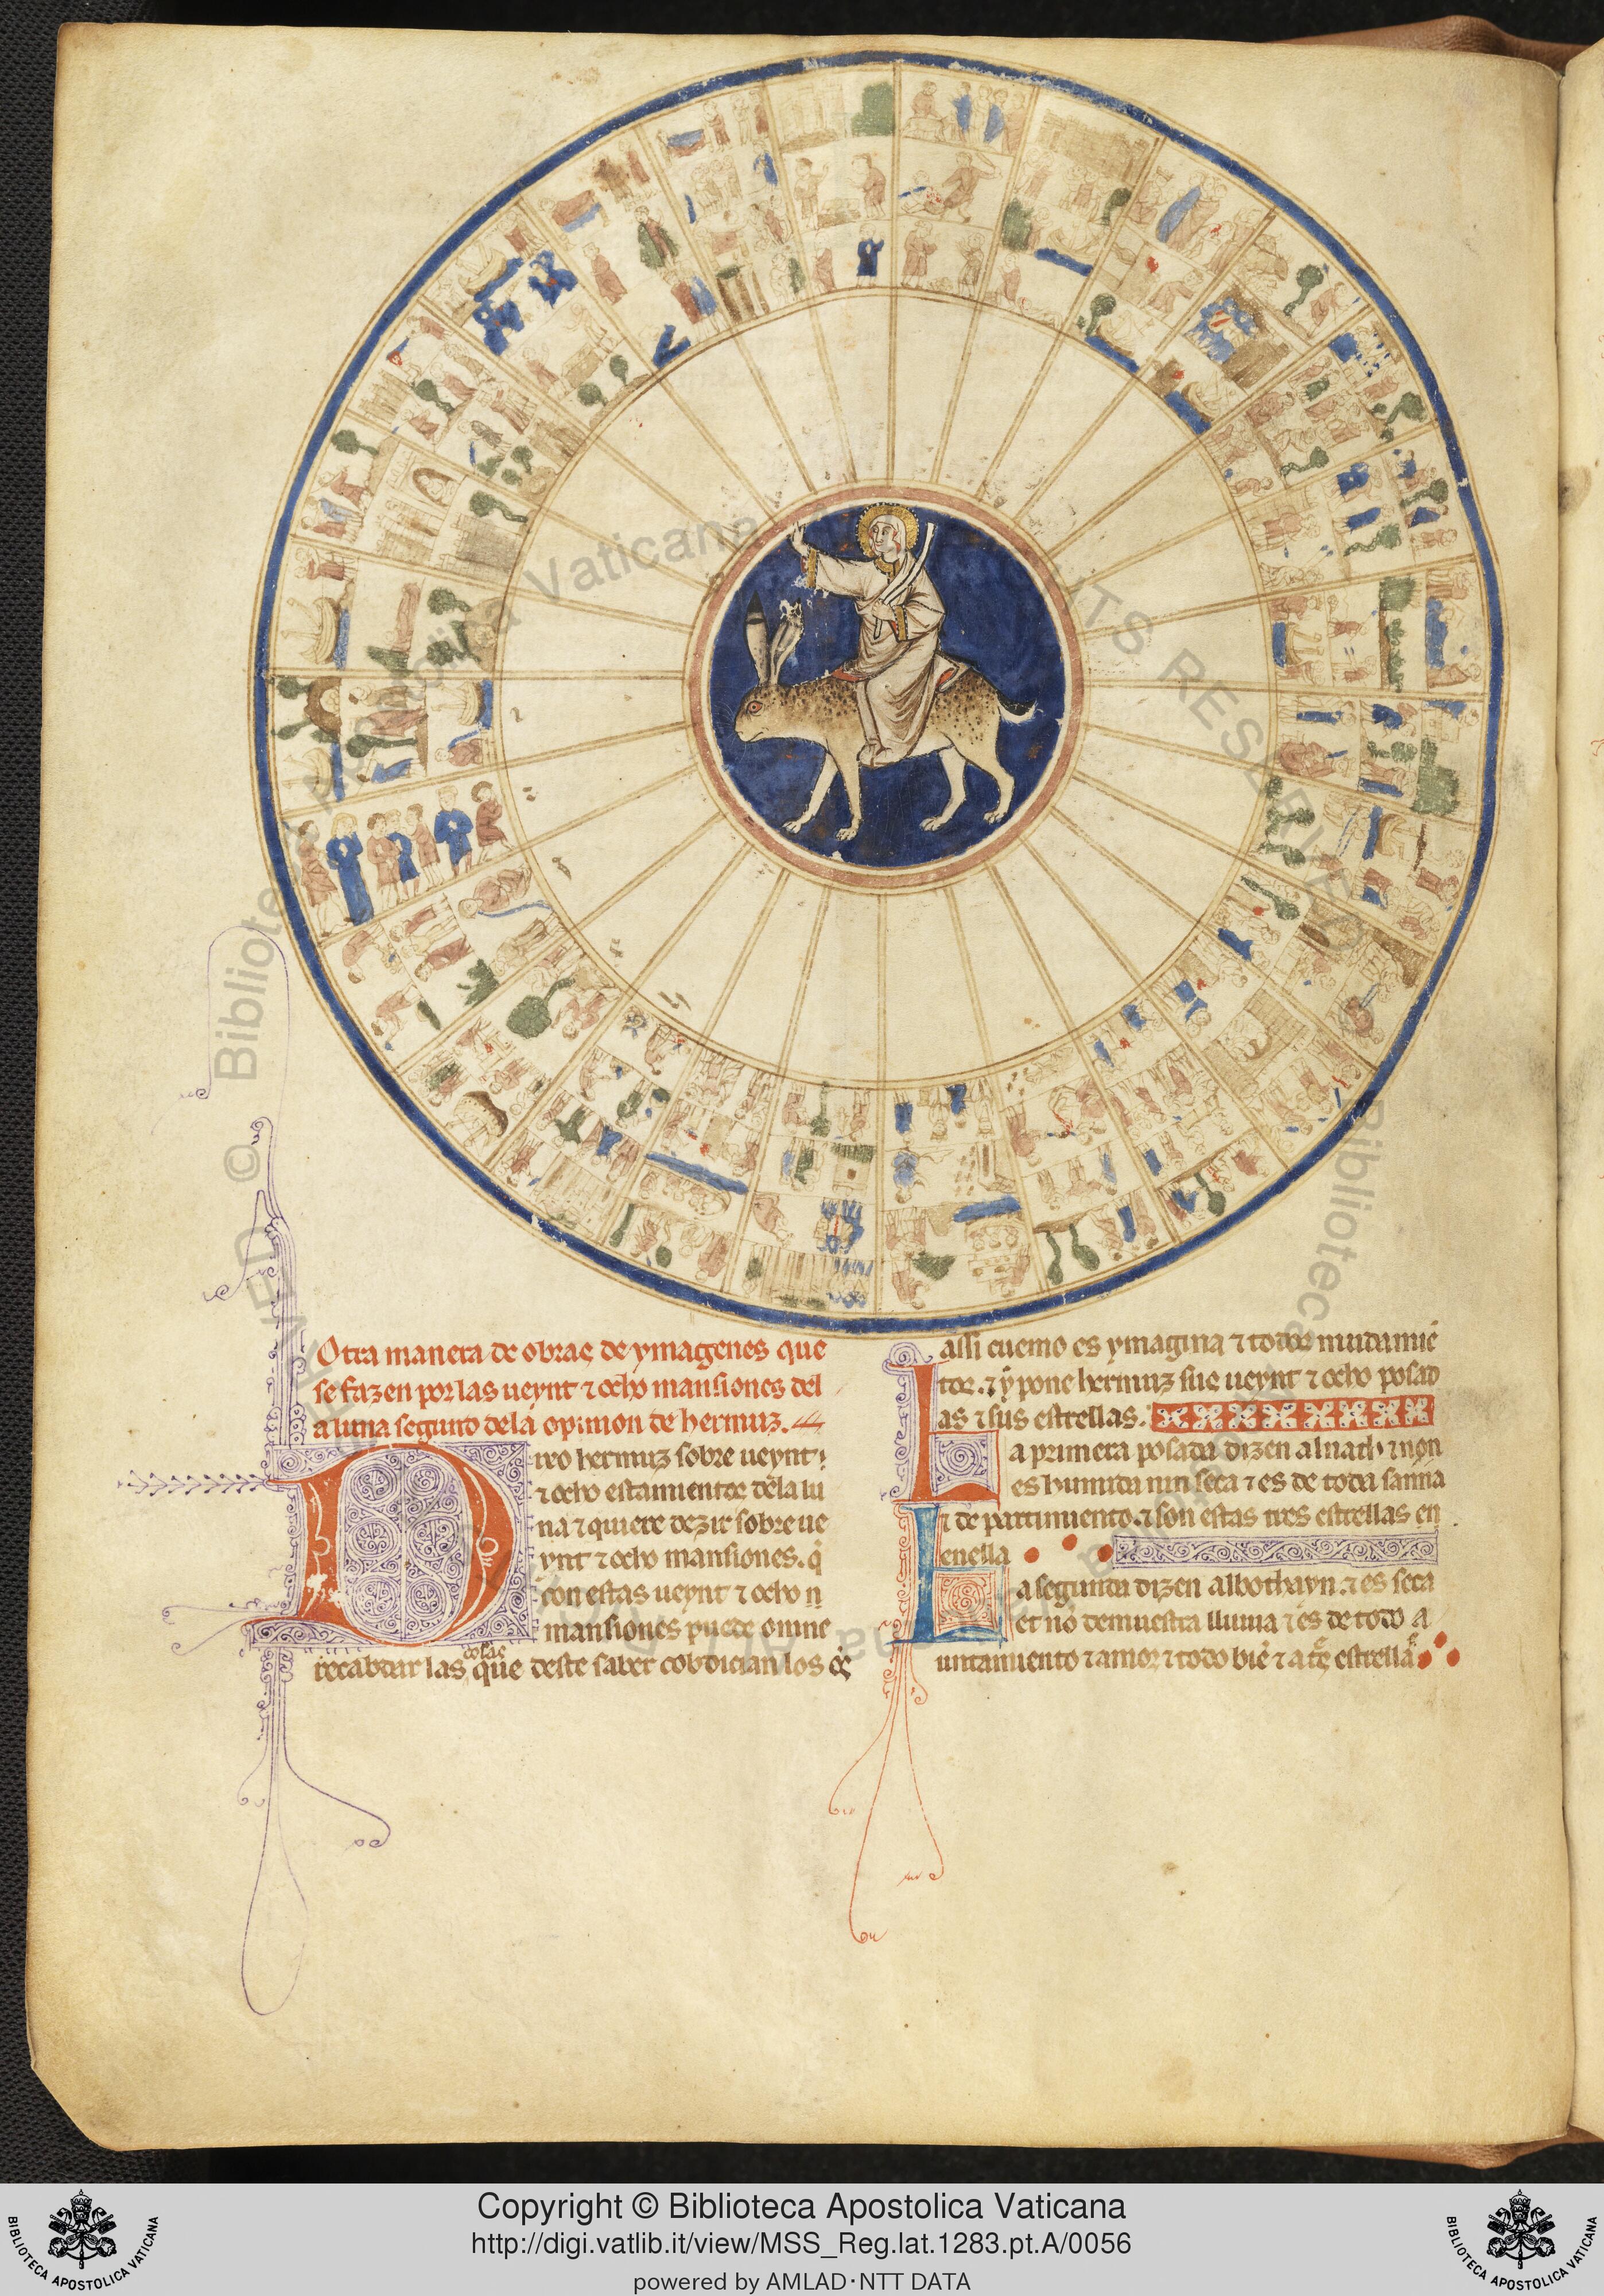 Otra manera de obras de ymagenes que
se fazen por las ueynt ⁊ ocho mansiones del
a luna segund de la opinion de hermuz.
Dixo hermuz sobre ueynt
⁊ ocho estamientos dela lu
na ⁊ quiere dezir sobre ue
ynt ⁊ ocho mansiones. q̇
con estas ueynt ⁊ ocho
mansiones puede omne
recabdar las cosas que deste saber cobdician los
assi cuemo es ymagina ⁊ todos mudamiē
tos. ⁊ y pone hermuz sus ueynt ⁊ ocho posad
as ⁊ sus estrellas.
La primera posada dizen alnath ⁊ non
es humida nin seca ⁊ es de toda sanna
⁊ de partimiento. ⁊ son estas tres estrellas en
enella
La segunda dizen albothayn. ⁊ es seca
et nō demuestra lluuia ⁊ es de todo a
untamiento ⁊ amor ⁊ todo biē ⁊ a estrellas
© Biblioteca Apostolica Vaticana
Copyright © Biblioteca Apostolica Vaticana
http://digi.vatlib.it/view/MSS_Reg.lat.1283.pt.A/0056
powered by AMLAD·NTT DATA
BIBLIOTECA APOSTOLICA VATICANA
BIBLIOTECA APOSTOLICA VATICANA